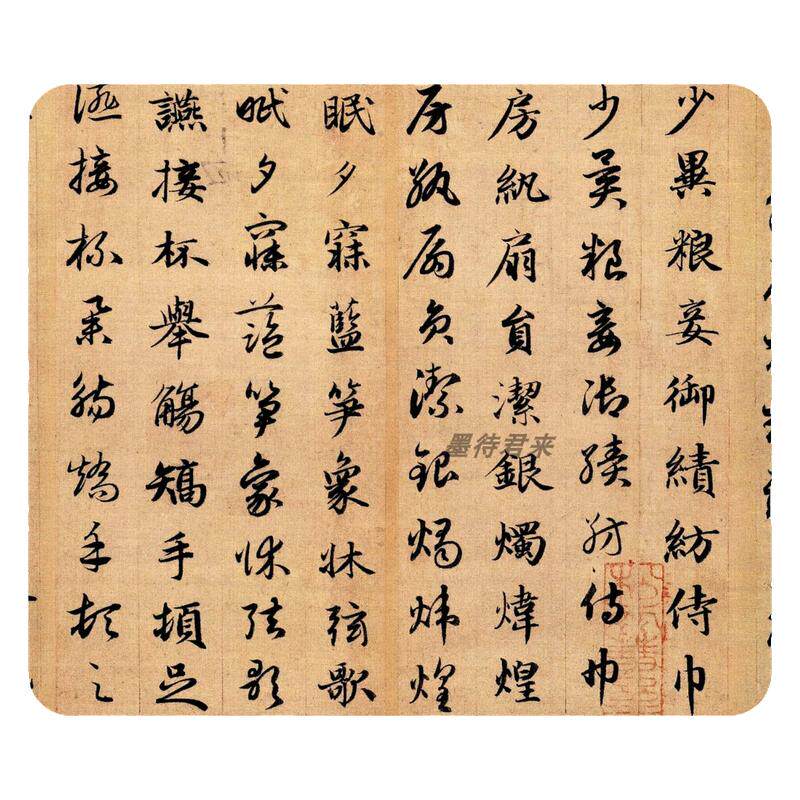 少異粮妾御績紡侍巾
少異粮妾御績紡侍巾
房紈扇員潔銀燭煒煌
房紈扇員潔銀燭煒煌
眠夕寐藍笋象牀弦歌
眠夕寐藍笋象牀弦歌
讌接杯舉觴矯手頓足
讌接杯舉觴矯手頓足
墨待君来